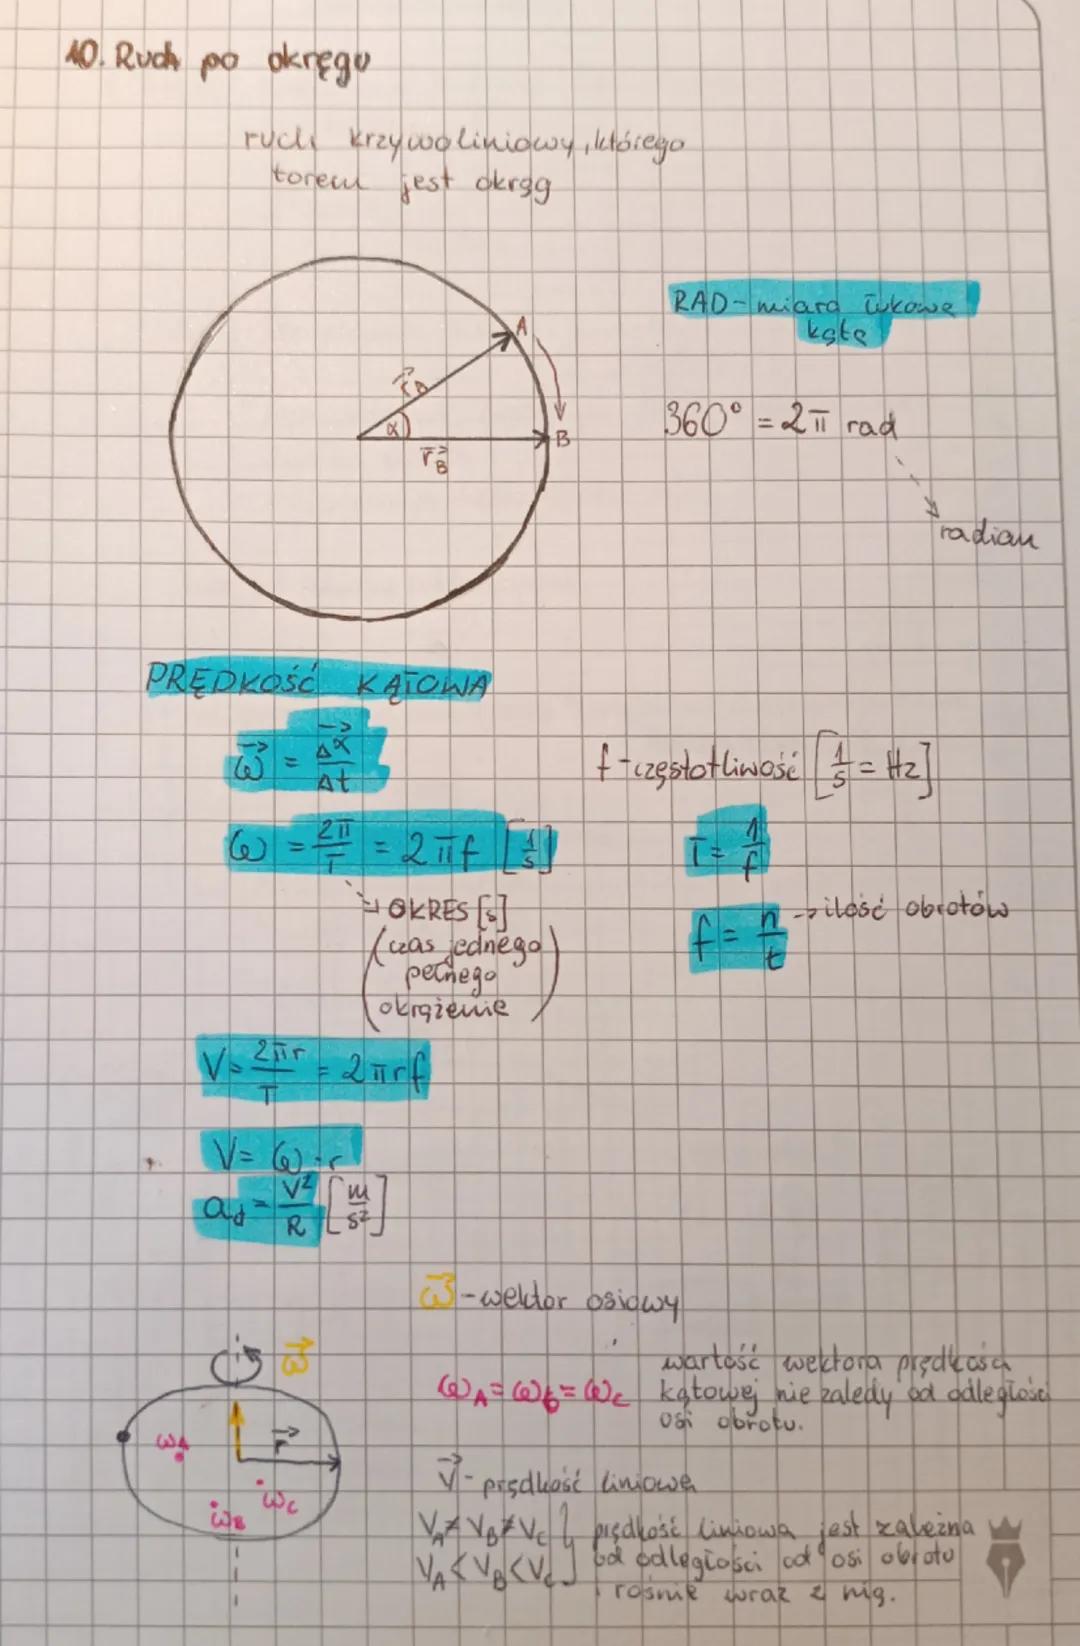 10. Ruch po okręgu
ruch krzywoliniowy, którego
torem jest okrąg
RAD - miara łukowa
kąta
A
r⃗A
α
B
r⃗B
360° = 2π rad
radian
PRĘDKOŚĆ KĄTOWA
ω⃗ = Δα⃗/Δt
f - częstotliwość [1/s = Hz]
ω = 2π/T = 2πf [1/s]
T = 1/f
→ OKRES [s]
(czas jednego
pełnego
okrążenie)
f = n/t → ilość obrotów
V = 2πr/T = 2πrf
V = ω · r
ad = V²/R [m/s²]
ω⃗ - wektor osiowy
ω⃗
r⃗
ωA
ωB
ωC
ωA = ωB = ωC
wartość wektora prędkości
kątowej nie zaledy od odległości
osi obrotu.
v⃗ - prędkość liniowa
VA ≠ VB ≠ VC } prędkość liniowa jest zależna
VA < VB < VC } od odległości od osi obrotu
i rośnie wraz z nią.